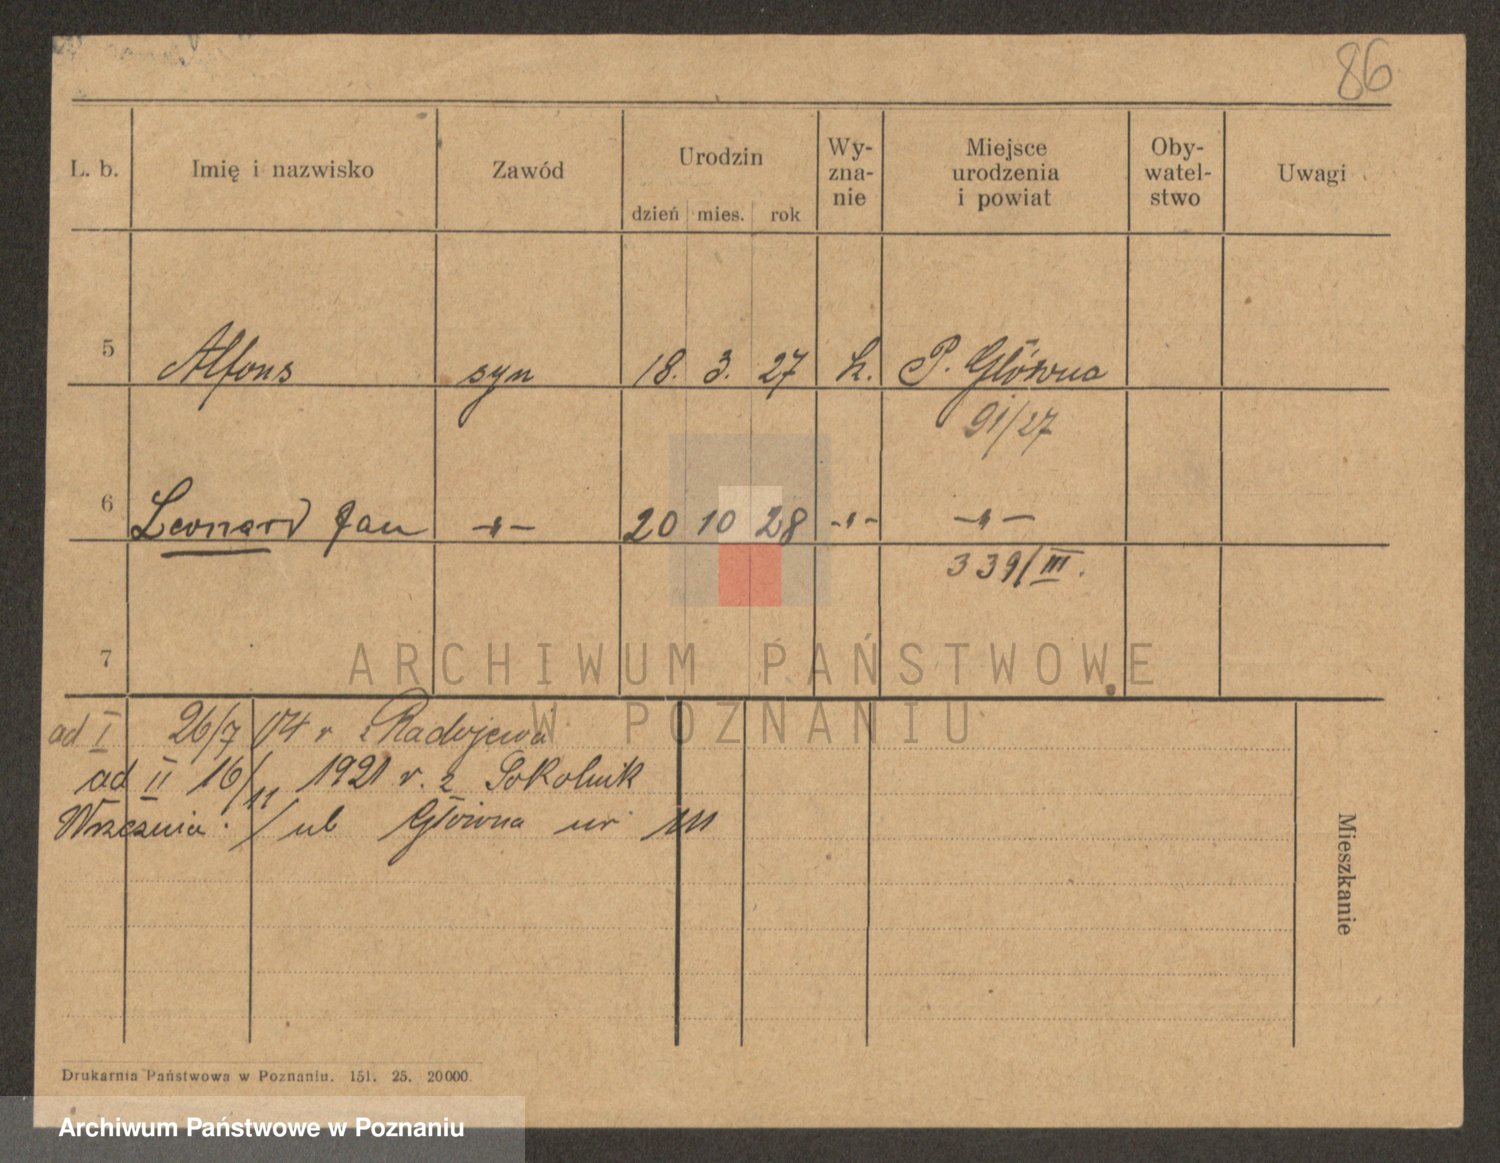 86
L. b. Imię i nazwisko Zawód Urodzin Wy-zna-nie Miejsce urodzenia i powiat Oby-watel-stwo Uwagi
dzień mies. rok
5 Alfons syn 18. 3. 27 k. P. Główna
91/27
6 Leonard Jan -„- 20 10 28 -„- -„-
339/III.
7
ARCHIWUM PAŃSTWOWE
W POZNANIU
ad I 26/7 04 r z Radojewa
ad II 16/11 1921 r. z Sokolnik
Września. / ul Główna nr
Mieszkanie
Drukarnia Państwowa w Poznaniu. 151. 25. 20000.
Archiwum Państwowe w Poznaniu